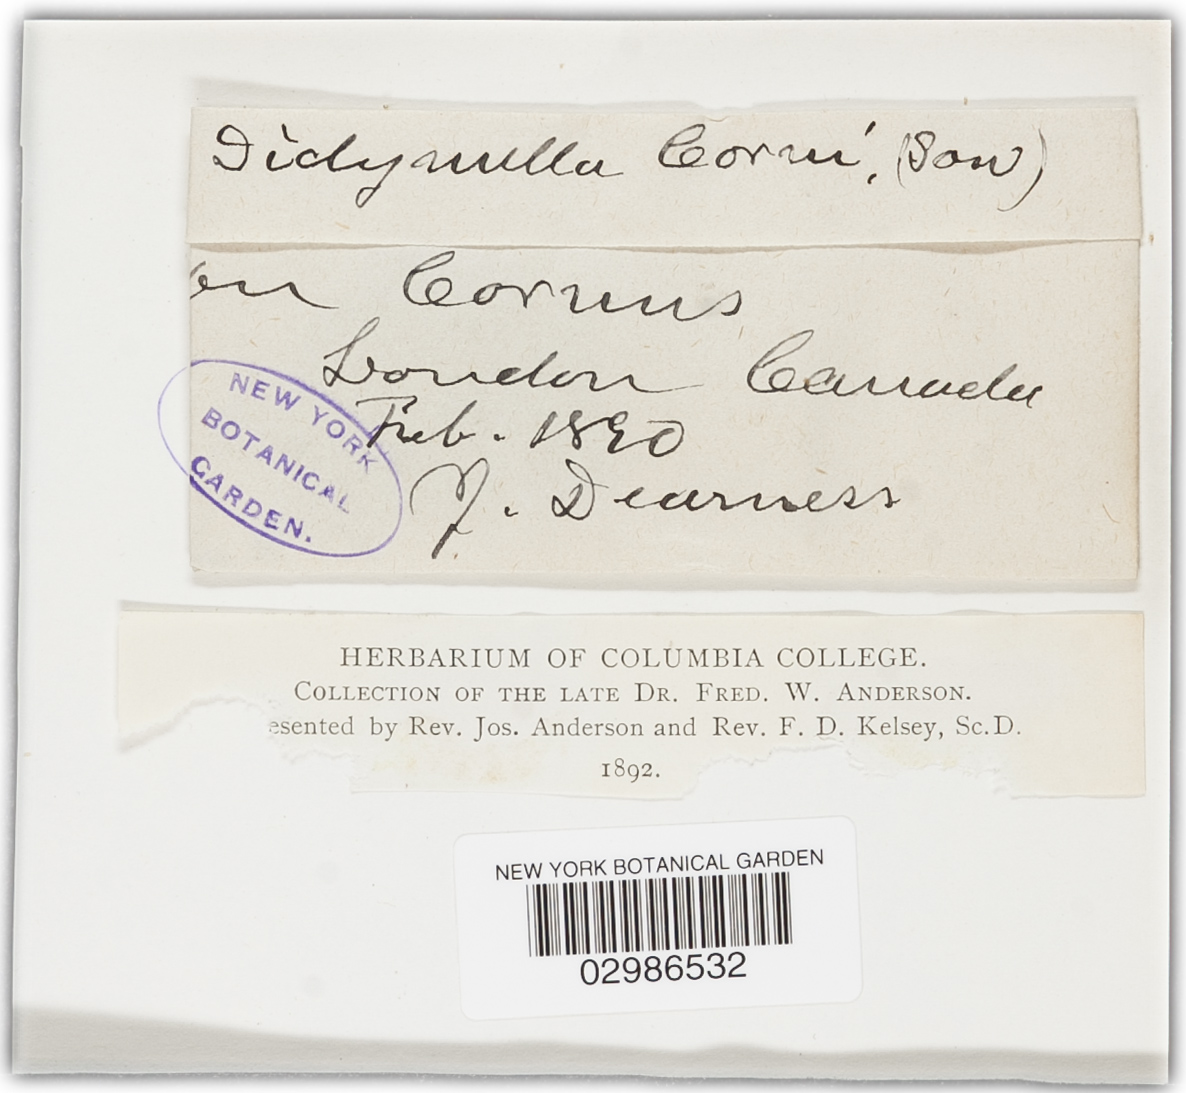 Didymella Corni, (Sow)
on Cornus
London Canada
Feb. 1890
J. Dearness
NEW YORK
BOTANICAL
GARDEN.
HERBARIUM OF COLUMBIA COLLEGE.
COLLECTION OF THE LATE DR. FRED. W. ANDERSON.
esented by Rev. Jos. Anderson and Rev. F. D. Kelsey, Sc.D.
1892.
NEW YORK BOTANICAL GARDEN
02986532